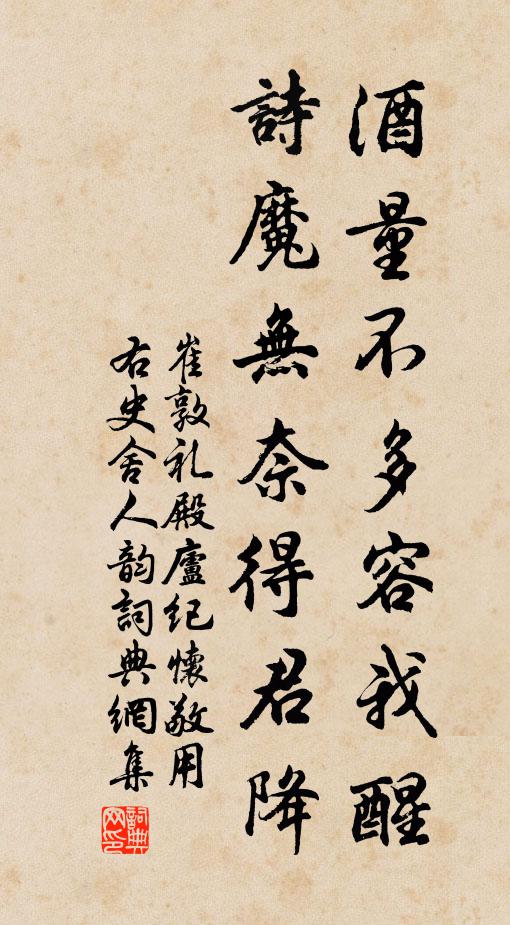 酒量不多容我醒
詩魔無奈得君降
崔敦礼殿廬纪懷敬用
右史舍人韵詞典網集
詞典网印